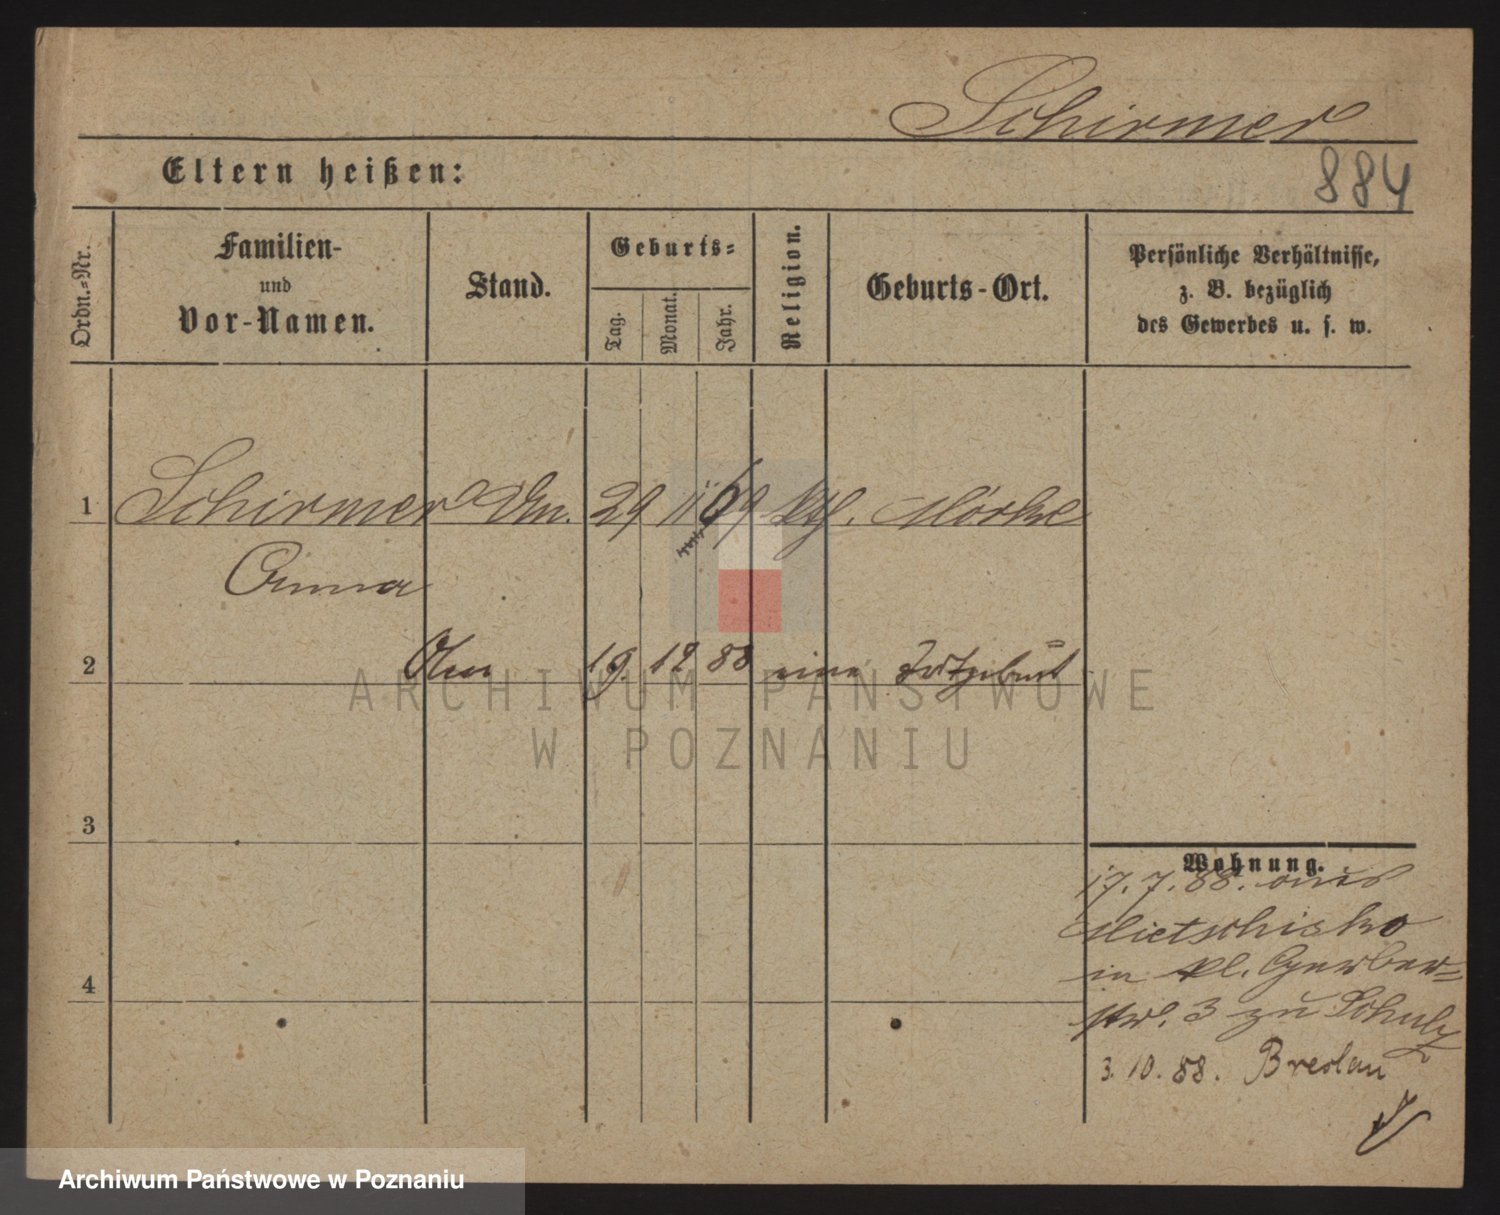 Schirmer
Eltern heißen:
884
Ordn.-Nr.
Familien-
und
Vor-Namen.
Stand.
Geburts-
Tag.
Monat.
Jahr.
Religion.
Geburts-Ort.
Persönliche Verhältnisse,
z. B. bezüglich
des Gewerbes u. s. w.
1 Schirmer 29 11 69 Kth.
Anna
2 19. 12 88 eine Totgeburt
ARCHIWUM PAŃSTWOWE
W POZNANIU
3
Wohnung.
17. 7. 88. aus
Mietschisko
4 in Kl. Gerber-
str. 3 zu Schulz
3. 10. 88. Breslau
Archiwum Państwowe w Poznaniu